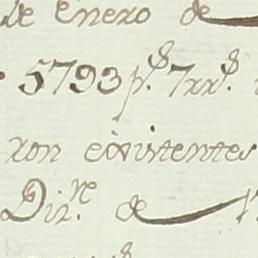 de enero de
5793 p.s 7 rr.s
ron existentes
Diz.re de